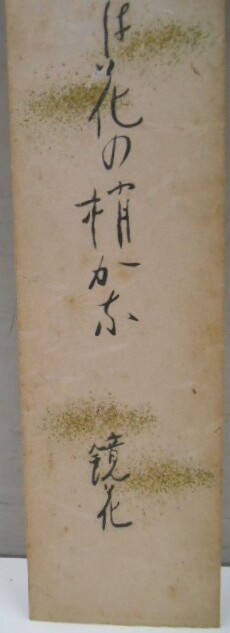 は花の梢かな
鏡花